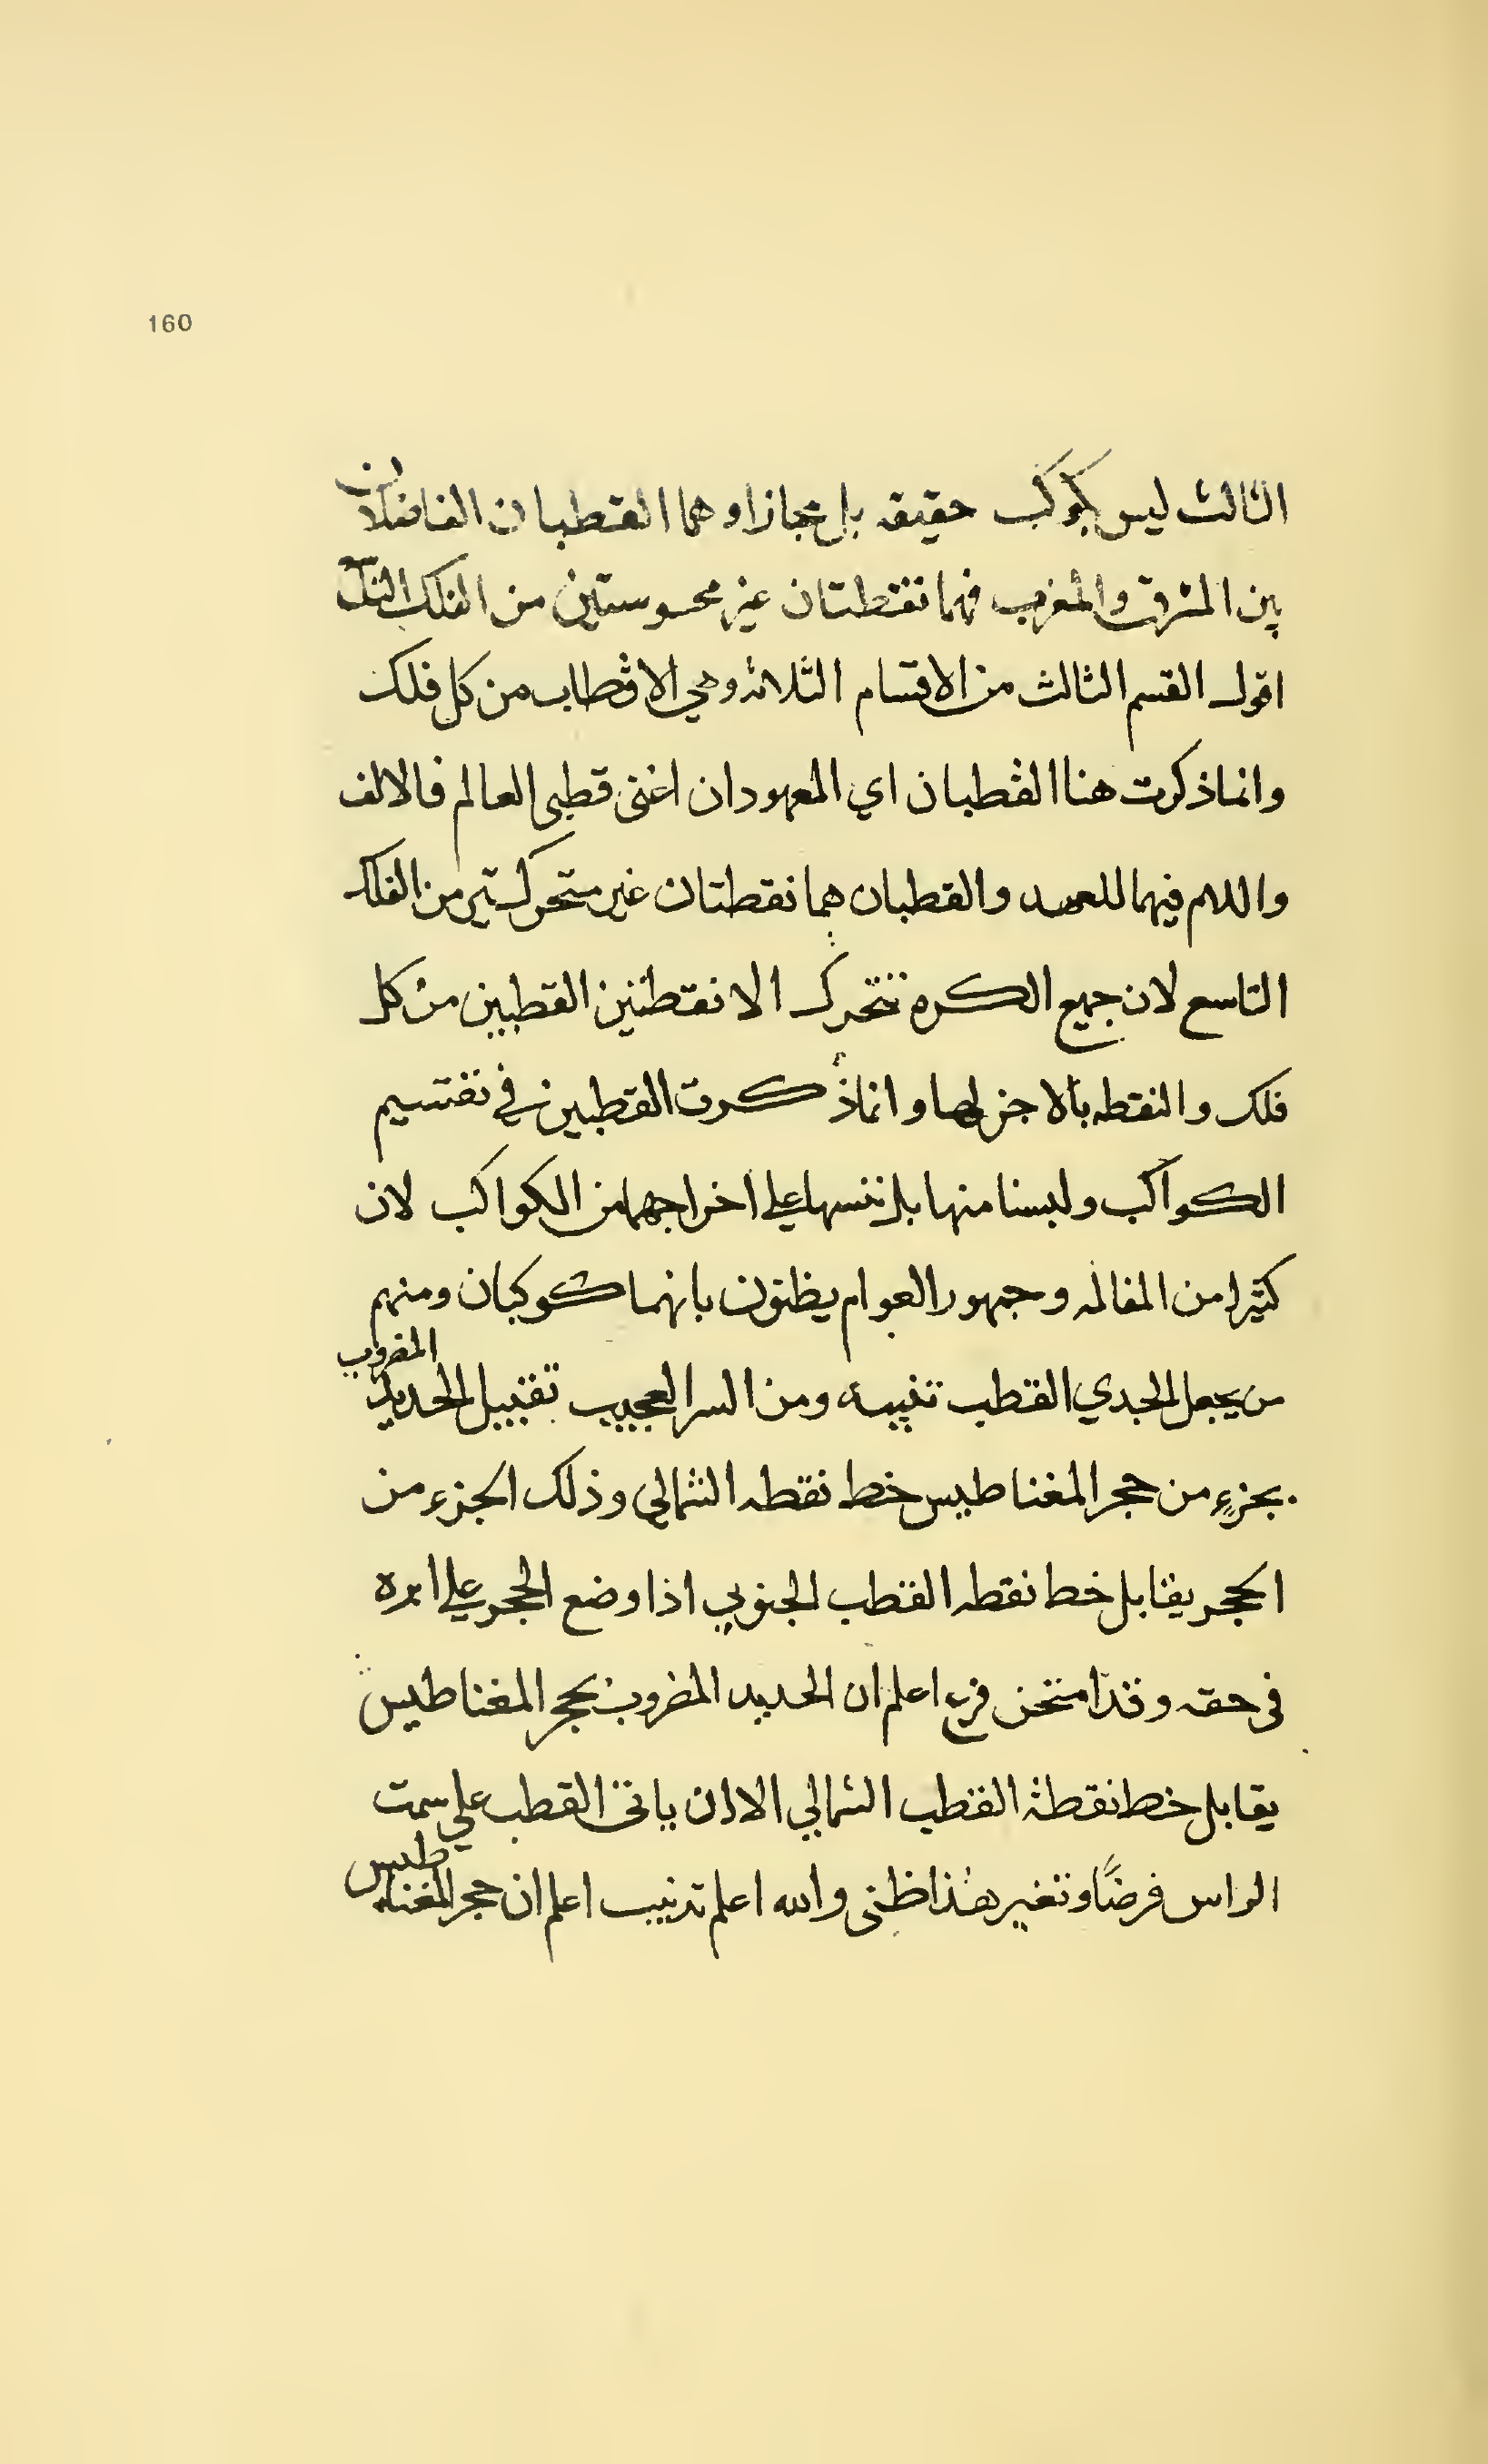 160
الثالث ليس بكوكب حقيقه بل مجازا وهما القطبان الفاضلان
بين المشرق والمغرب فهما نقطتان غير محسوستين من الفلك
اقول القسم الثالث من الاقسام الثلاثه وهي الاقطاب من كل فلك
وانما ذكرت هنا القطبان اي المعهودان اعنى قطبى العالم فالالف
واللام فيهما للعهد والقطبان هما نقطتان غير متحركتين من الفلك
التاسع لان جميع الكره تتحرك الا نقطتين القطبين من كل
فلك والنقطه بالاجز لها وانما ذكرت القطبين في تقسيم
الكواكب وليسنا منها بل ننبها علي اخراجهما من الكواكب لان
كثيرا من المقالمه وجمهور العوام يظنون بانهما كوكبان ومنهم
من يجعل الجدي القطب تنبيه ومن السر العجيب تقبيل الحديد المضروب
بجزءٍ من حجر المغناطيس خط نقطه الشمالي وذلك الجزء من
الحجر يقابل خط نقطه القطب الجنوبي اذا وضع الحجر علي ابره
في حقه وقد امتحن فرع اعلم ان الحديد المضروب بحجر المغناطيس
يقابل خط نقطة القطب الشمالي الا ان ياتى القطب علي سمت
الراس فرضًا وتغير هذا ظنى والله اعلم تدنيب اعلم ان حجر المغناطيس